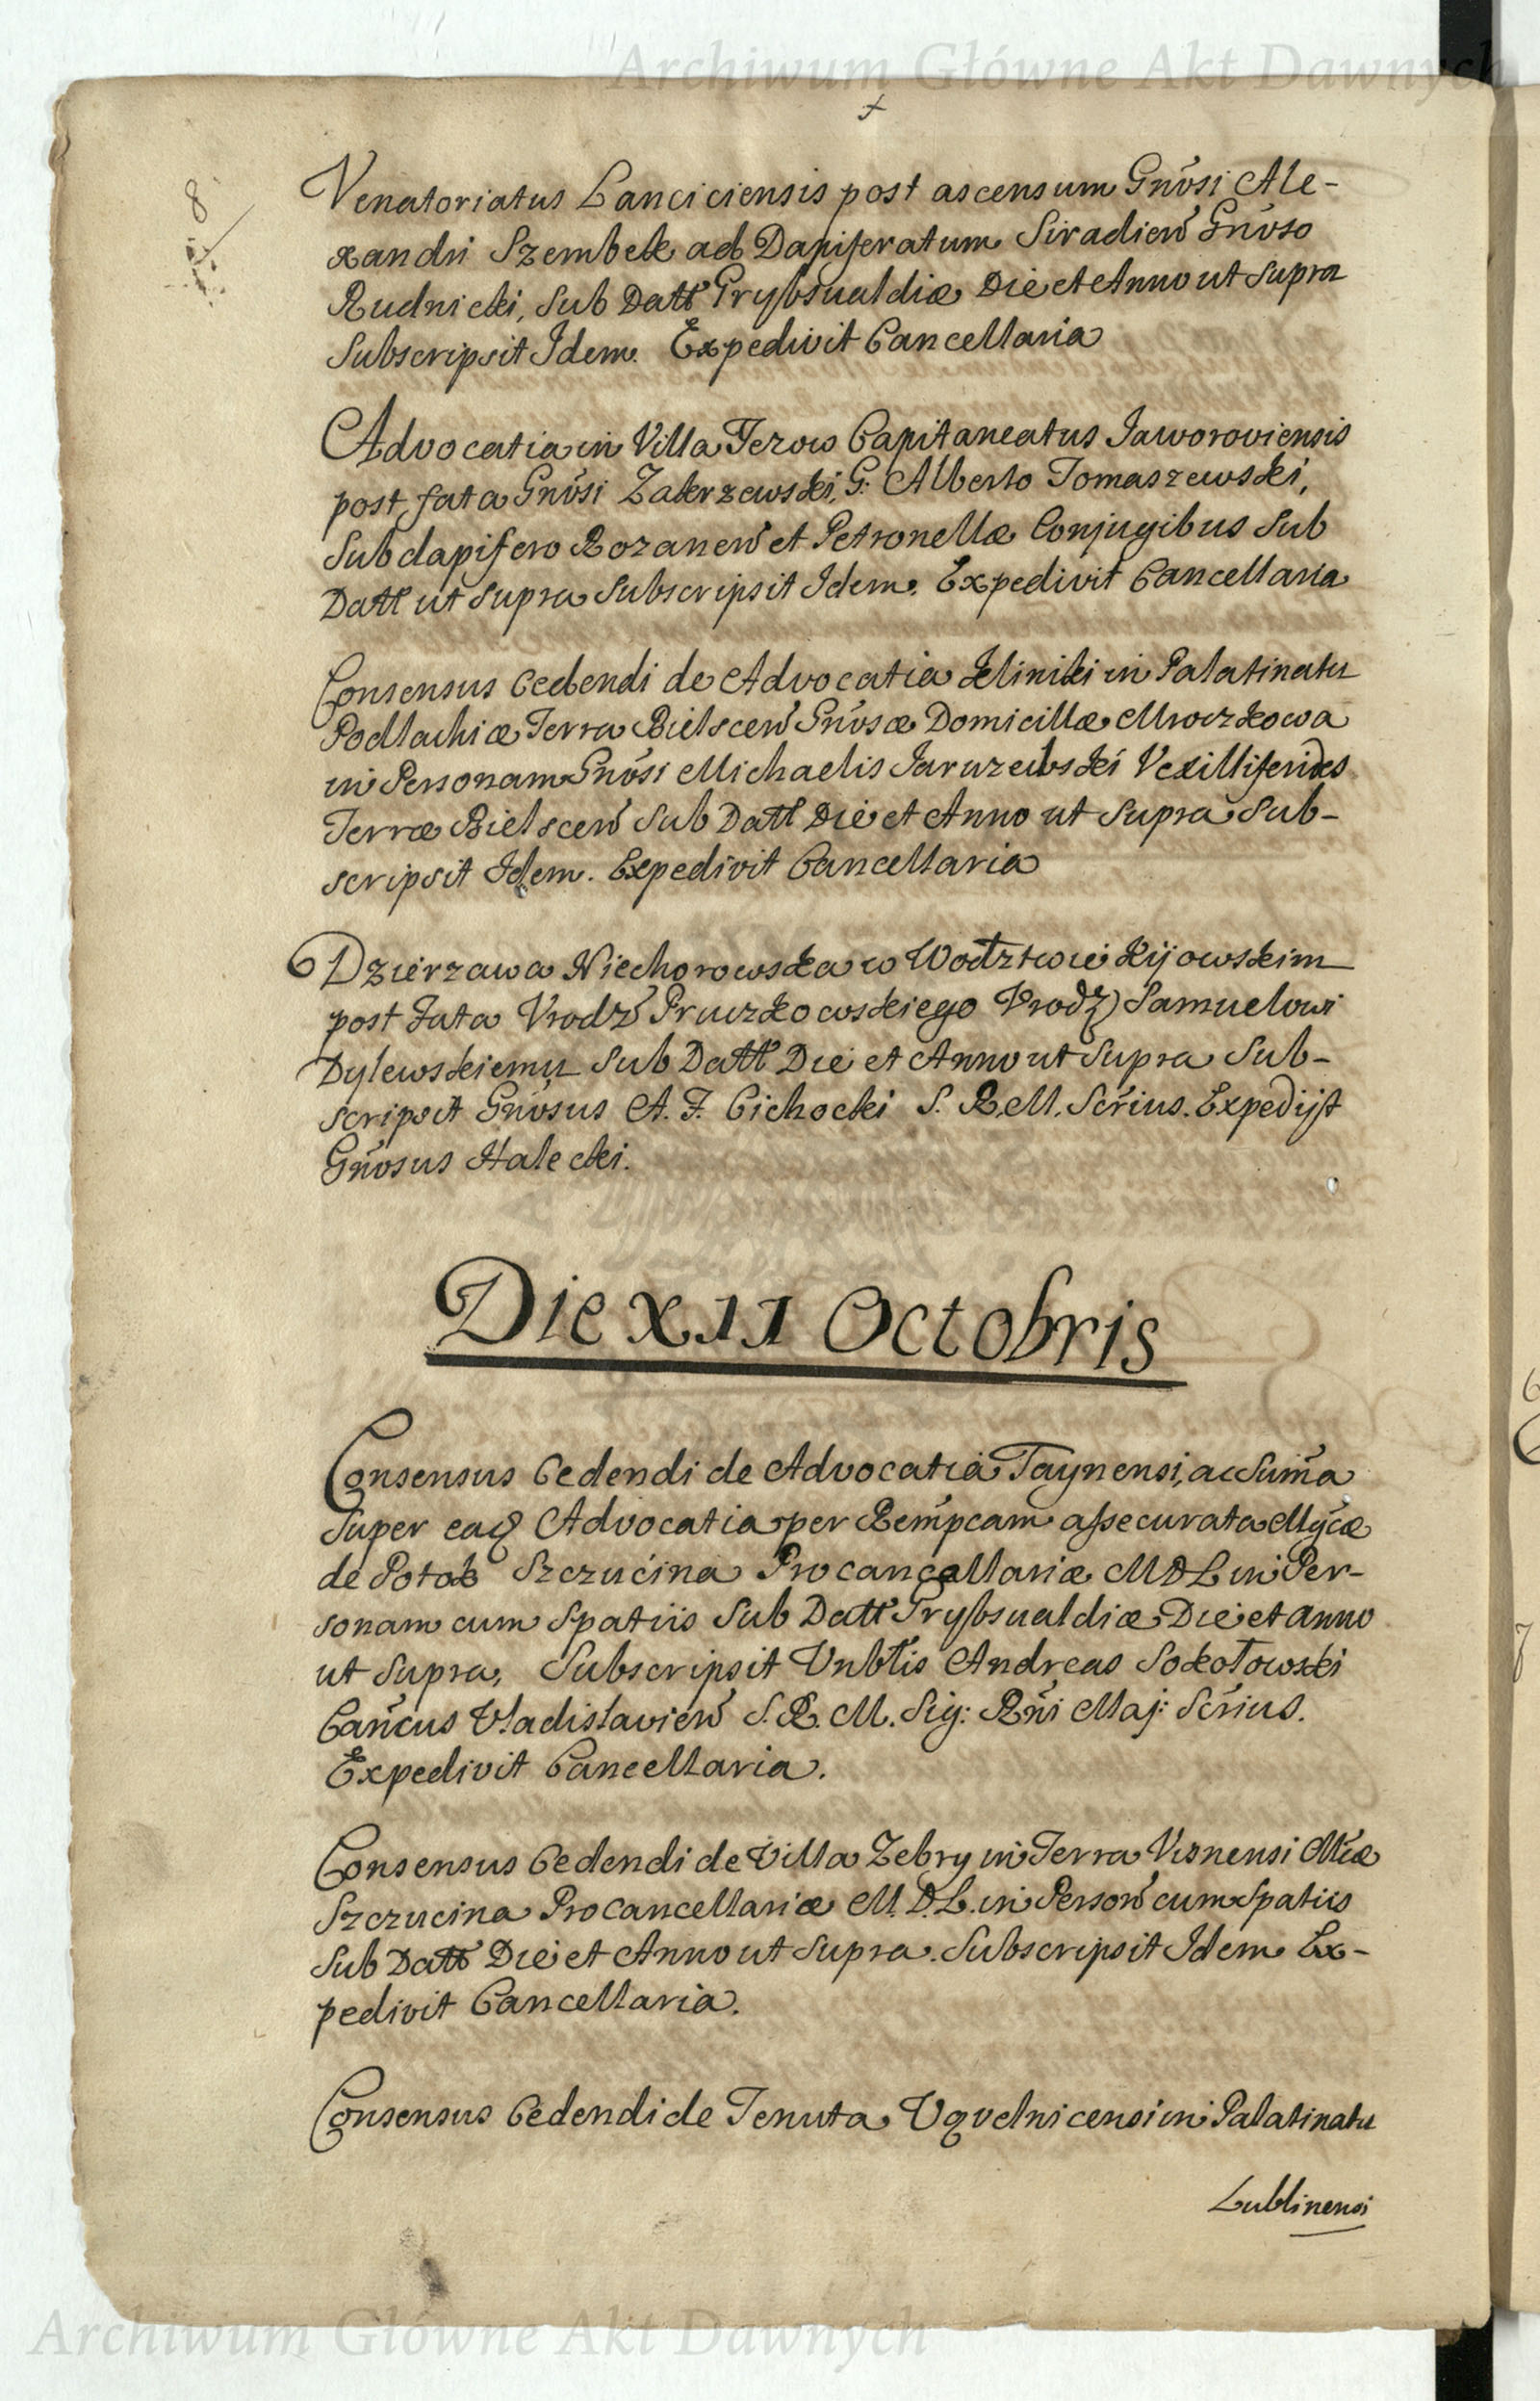 Archiwum Główne Akt Dawnych
8
Venatoriatus Lanciciensis post ascensum Gnosi Ale-
xandri Szembek ad Dapiferatum Siradien Gnoso
Rudnicki, Sub Datt Grybsualdiæ Die et Anno ut Supra
Subscripsit Idem. Expedivit Cancellaria
Advocatia in Villa Jezow Capitaneatus Jaworoviensis
post fata Gnosi Zakrzewski, G: Alberto Tomaszewski,
Subdapifero Rozanen et Petronellæ Conjugibus Sub
Datt ut Supra Subscripsit Idem. Expedivit Cancellaria
Consensus Cedendi de Advocatia Kliniki in Palatinatu
Podlachiæ Terra Bielscen Gnosæ Domicillæ Mroczkowa
in Personam Gnosi Michaelis Jaruzewski Vexilliferides
Terræ Bielscen Sub Datt Die et Anno ut Supra Sub-
scripsit Idem. Expedivit Cancellaria
Dzierzawa Niechorowska w Wodztwie Kijowskim
post Fata Vrodz Pruszkowskiego Vrodz Samuelowi
Dylewskiemu Sub Datt Die et Anno ut Supra Sub-
scripsit Gnosus A. F. Cichocki S. R. M. Scrius. Expedijt
Gnosus Halecki.
Die XII Octobris
Consensus Cedendi de Advocatia Taynensi, ac Suma
Super eaq Advocatia per Rempcam assecurata Mgcæ
de Potok Szczucina Procancellariæ M D L in Per-
sonam cum Spatiis Sub Datt Grybsualdiæ Die et anno
ut Supra, Subscripsit Vnbtis Andreas Sokołowski
Cancus Vladislavien S. R. M. Sig: Rni Maj: Scrius.
Expedivit Cancellaria.
Consensus Cedendi de Villa Zebry in Terra Visnensi Mcæ
Szczucina Procancellariæ M. D. L. in Person cum Spatiis
Sub Datt Die et Anno ut Supra. Subscripsit Idem Ex-
pedivit Cancellaria.
Consensus Cedendi de Tenuta Vgvelnicensi in Palatinatu
Lublinensi
Archiwum Główne Akt Dawnych